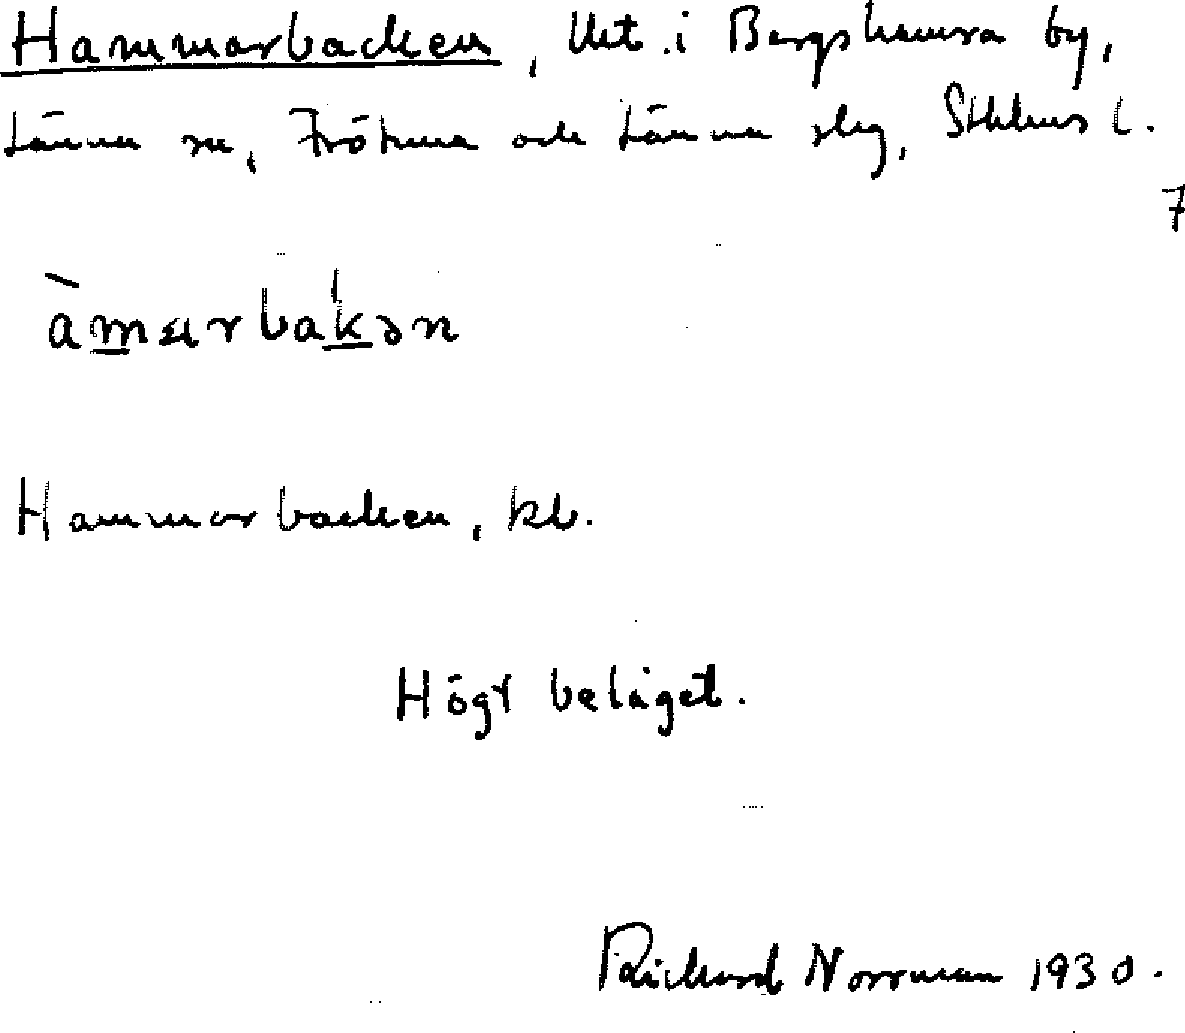 Hammarbacken, lht. i Bergshamra by,
Länna sn, Frötuna och Länna slg, Sthlms l.
7
àmarbakən
Hammarbacken, kb.
Högt beläget.
Richard Norrman 1930.